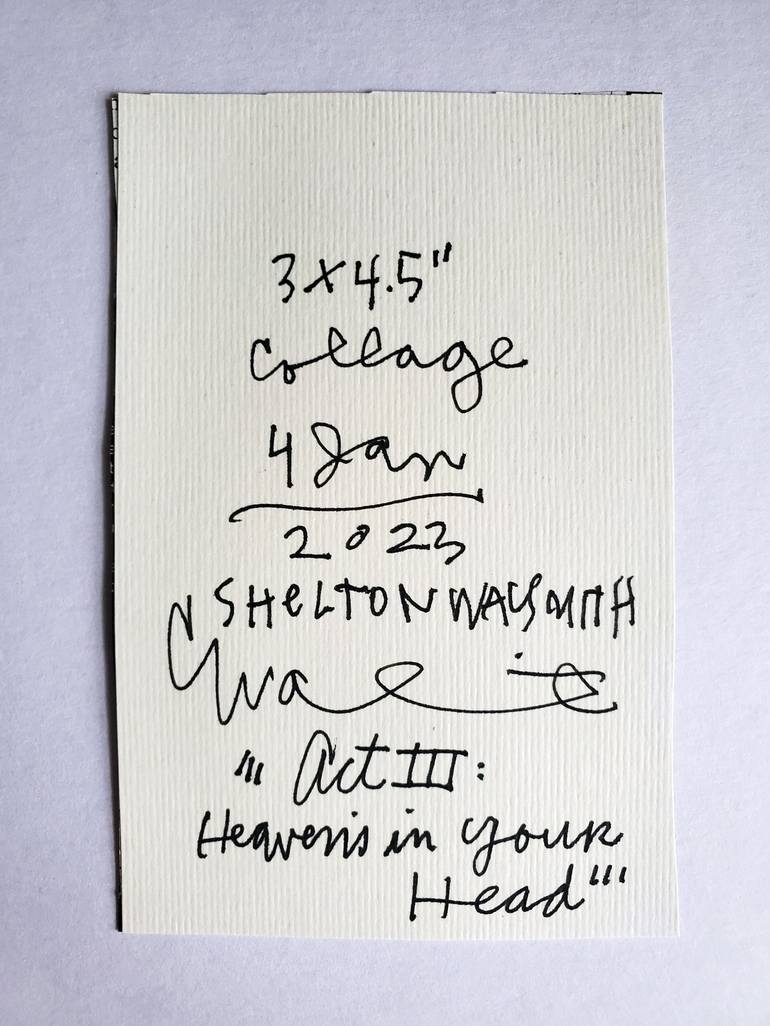 3 x 4.5"
Collage
4 Jan
2023
SHELTON WALSMITH
"' Act III:
Heaven's in your
Head"'